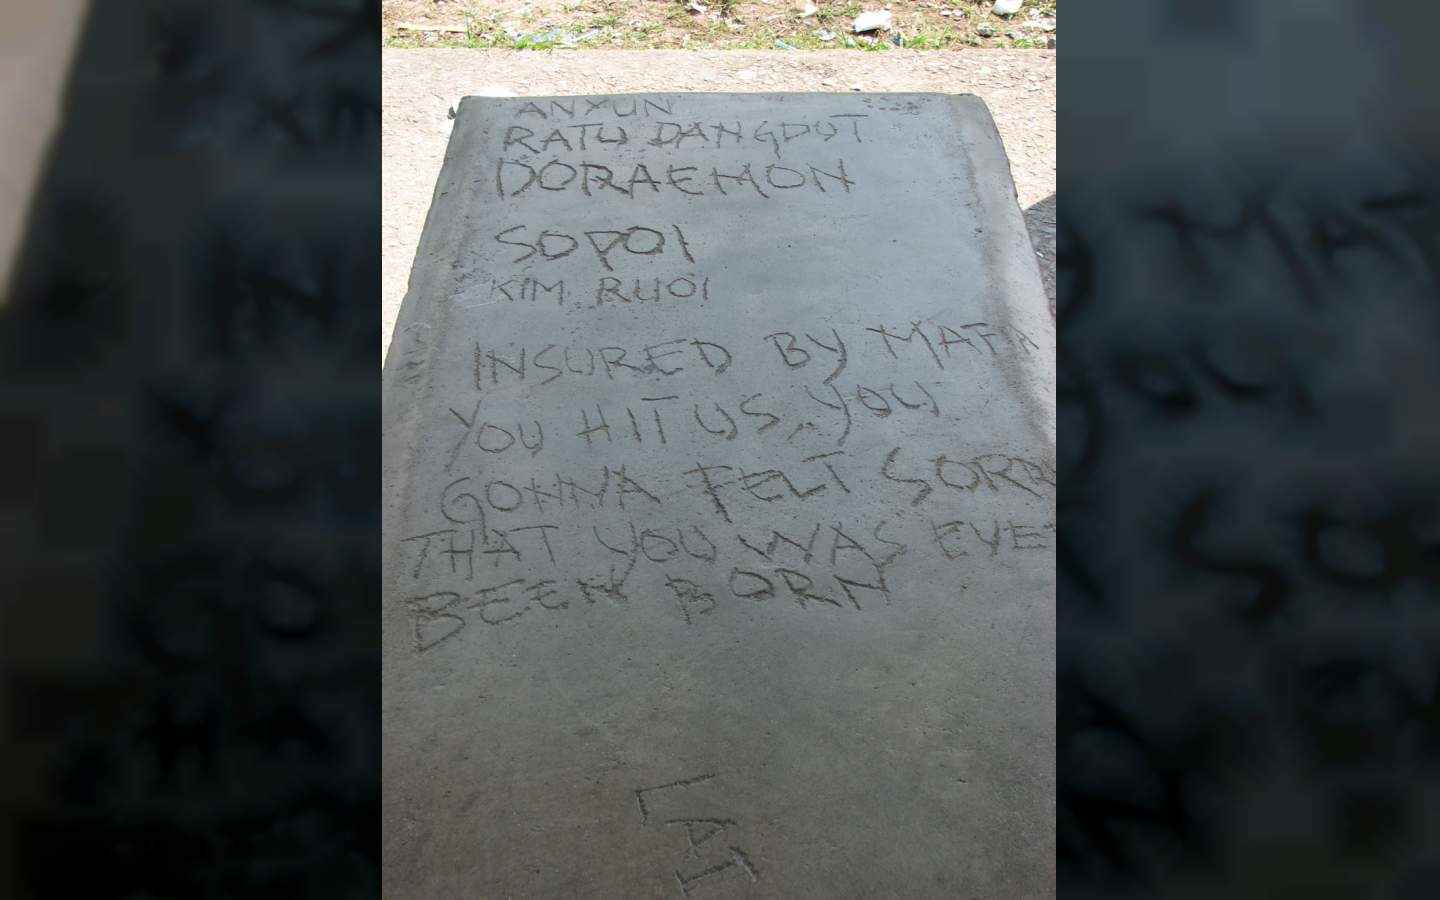 ANYUN
RATU DANGDUT
DORAEMON
SOPOI
KIM RUOI
INSURED BY MAFIA
YOU HIT US, YOU
GONNA FELT SORRY
THAT YOU WAS EVER
BEEN BORN
LAI